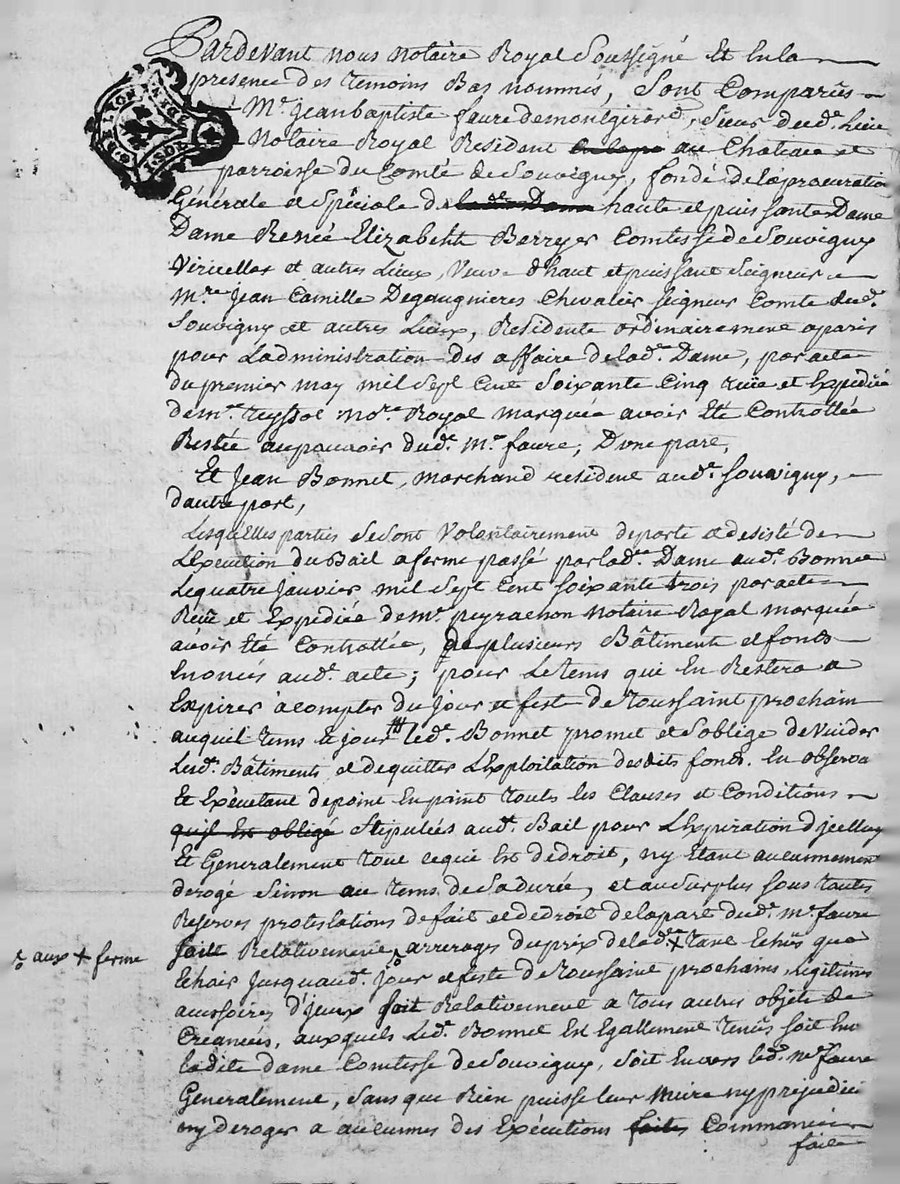 Pardevant nous notaire Royal Soussigné Et En la
presence des temoins Bas nommés, Sont Comparûs
Mr. Jean baptiste faure demontgirard, Sieur dud. lieu
Notaire Royal Resident au Chateau et
parroisse du Comté de Souvigny, fondé de la procuration
Générale et Spéciale de ladte Dame haute et puissante Dame
Dame Renée Elizabeth Berryer Comtesse de Souvigny
Viricelles et autres Lieux, Veuve d'haut et puissant Seigneur
Mre. Jean Camille Degaugnieres Chevalier Seigneur Comte dud.
Souvigny et autres Lieux, Residente ordinairement a paris
pour Ladministration des affaire de lad. Dame, par acte
du premier may mil Sept Cent Soixante Cinq reçu et Expédiée
de me. teyssot nore. Royal marquée avoir Eté Controllée
Restée au pouvoir dud. Me. faure, D'une part,
Et Jean Bonnet, marchand resident aud. Souvigny,
dautre part,
Lesquelles parties Se Sont Volontairement departe et desisté de
L'Execution du Bail a ferme passé par lad. Dame aud. Bonnet
Le quatre Janvier mil Sept Cent Soixante trois par acte
Reçu et Expediée de me. peyrachon notaire Royal marquée
avoir Eté Controllée, de plusieurs Bâtiment et fonds
Enoncés aud. acte; pour Le tems qui En Restera a
Expirer à compter du Jour et feste de toussaint prochain
auquel tems et jour led. Bonnet promet et S'oblige de Vuider
Lesd. Bâtiments et de quitter L'Exploitation desdits fonds. En observant
Et Exécutant de point En point touts les Clauses et Conditions
qu'il Est obligé Stipulées aud. Bail pour L'Expiration d'jcelluy
Et Generalement tout ce qui Est de droit, ny Etant aucunnement
derogé Sinon au tems de Sa durée, et au Surplus Sous toutes
Reserves protestations de fait et de droit de la part dud. Me. faure
soit Relativement ⸰ arrerages du prix de lad. + tant Echûs que
Echoir Jusqu'aud. jour et feste de toussaint prochains, Légitimes
⸰ aux + ferme
accessoires d'jceux soit Relativement a tous autres objets de
Creances, auxquels Led. Bonnet Est Egallement tenûs soit En
ladite dame Comtesse de Souvigny, soit Envers led. Me. faure
Generalement, Sans que Rien puisse leur Nuire ny prejudici
ny deroger a aucunnes des Exécutions faites Commanc
faite